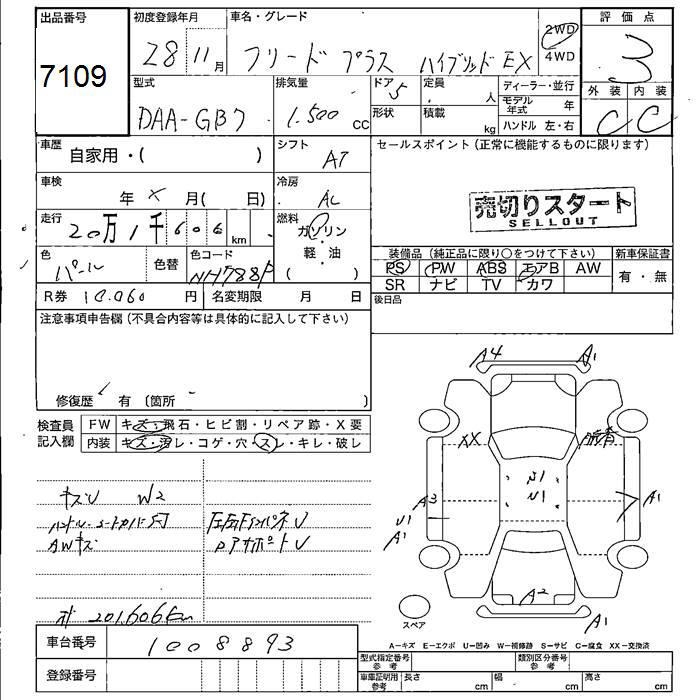 出品番号
7109
初度登録年月
28 11月
車名・グレード
フリード プラス ハイブリッド EX
2WD
4WD
評価点
3
外装 内装
C C
型式
DAA-GB7
排気量
1.500 cc
ドア 5
形状
定員 人
積載 kg
ディーラー・並行
モデル年式 年
ハンドル 左・右
車歴
自家用・( )
シフト
AT
セールスポイント(正常に機能するものに限ります)
車検
年 × 月( 日)
冷房
AC
売切りスタート
SELLOUT
走行
20万1千606km
燃料
ガソリン
・
軽・油
( )
色
パール
色替
色コード
NH788P
装備品(純正品に限り○をつけて下さい)
PS PW ABS エアB AW
SR ナビ TV カワ
新車保証書
有・無
R券 10.060 円
名変期限 月 日
後日品
注意事項申告欄(不具合内容等は具体的に記入して下さい)
修復歴 有 〔箇所
検査員記入欄
FW キズ・飛石・ヒビ割・リペア跡・X要
内装 キズ・汚レ・コゲ・穴・スレ・キレ・破し
キズU W2
AWキズ
才 201.606km
A4 A1
XX
U1
U1
A3
U1
A1
A1
A2
A1
スペア
A−キズ E−エクボ U−凹み W−補修跡 S−サビ C−腐食 XX−交換済
車台番号 1008893
登録番号
型式指定番号 参考
類別区分番号 参考
車庫証明用 参考
長さ cm
幅 cm
高さ cm